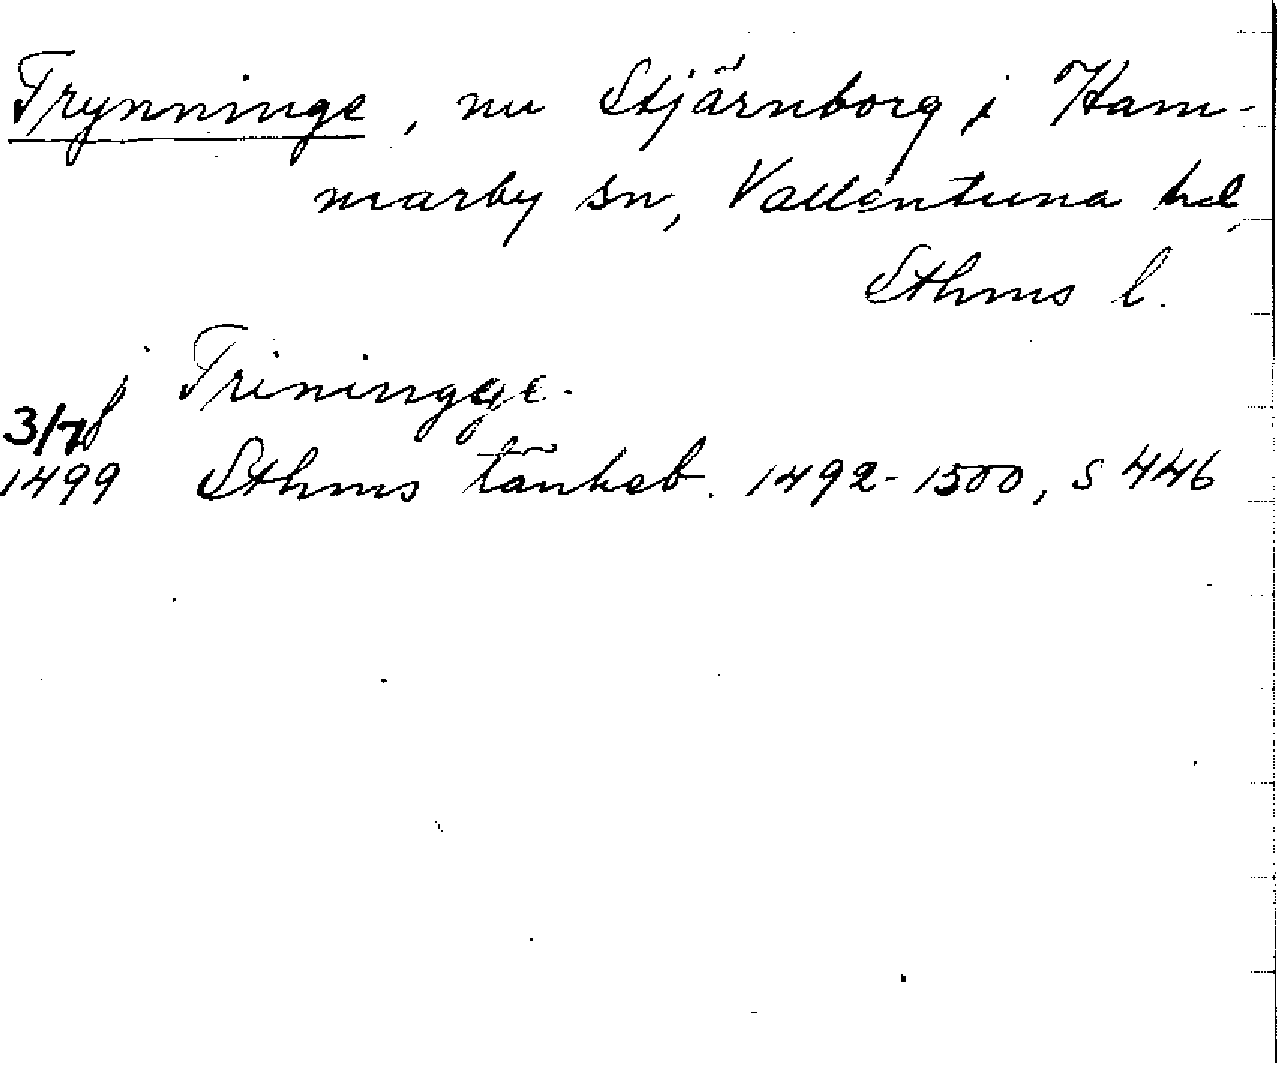 Trynninge, nu Stjärnborg i Ham-
marby sn, Vallentuna hd,
Sthms l.
j Triningge.
3/7
1499 Sthms tänkeb. 1492-1500, s 446